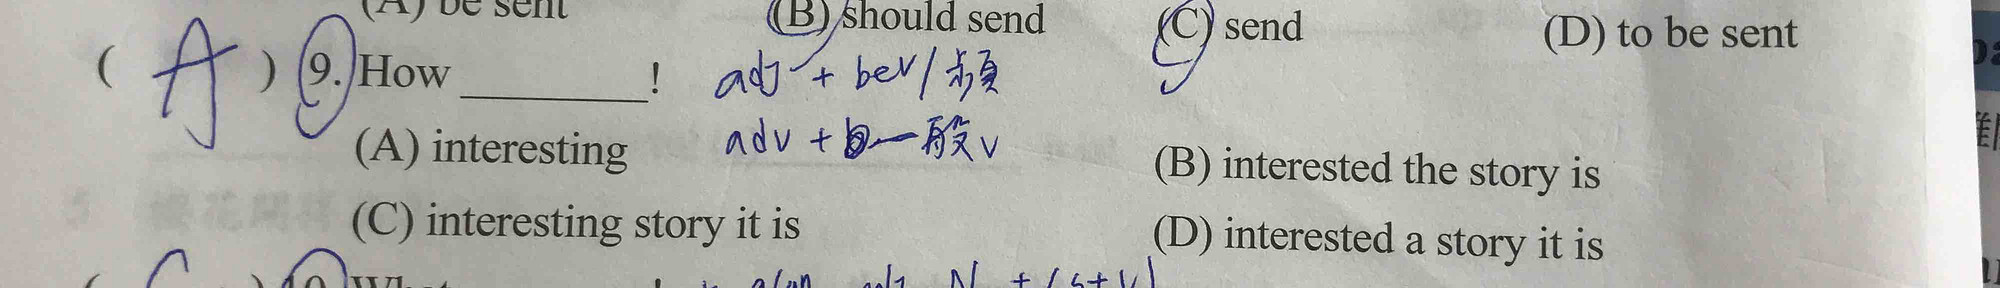 (A) be sent (B) should send (C) send (D) to be sent
( A ) 9. How ________! adj + bev/頻
adv + 一般v
(A) interesting (B) interested the story is
(C) interesting story it is (D) interested a story it is
What ! adj N + (s+v)